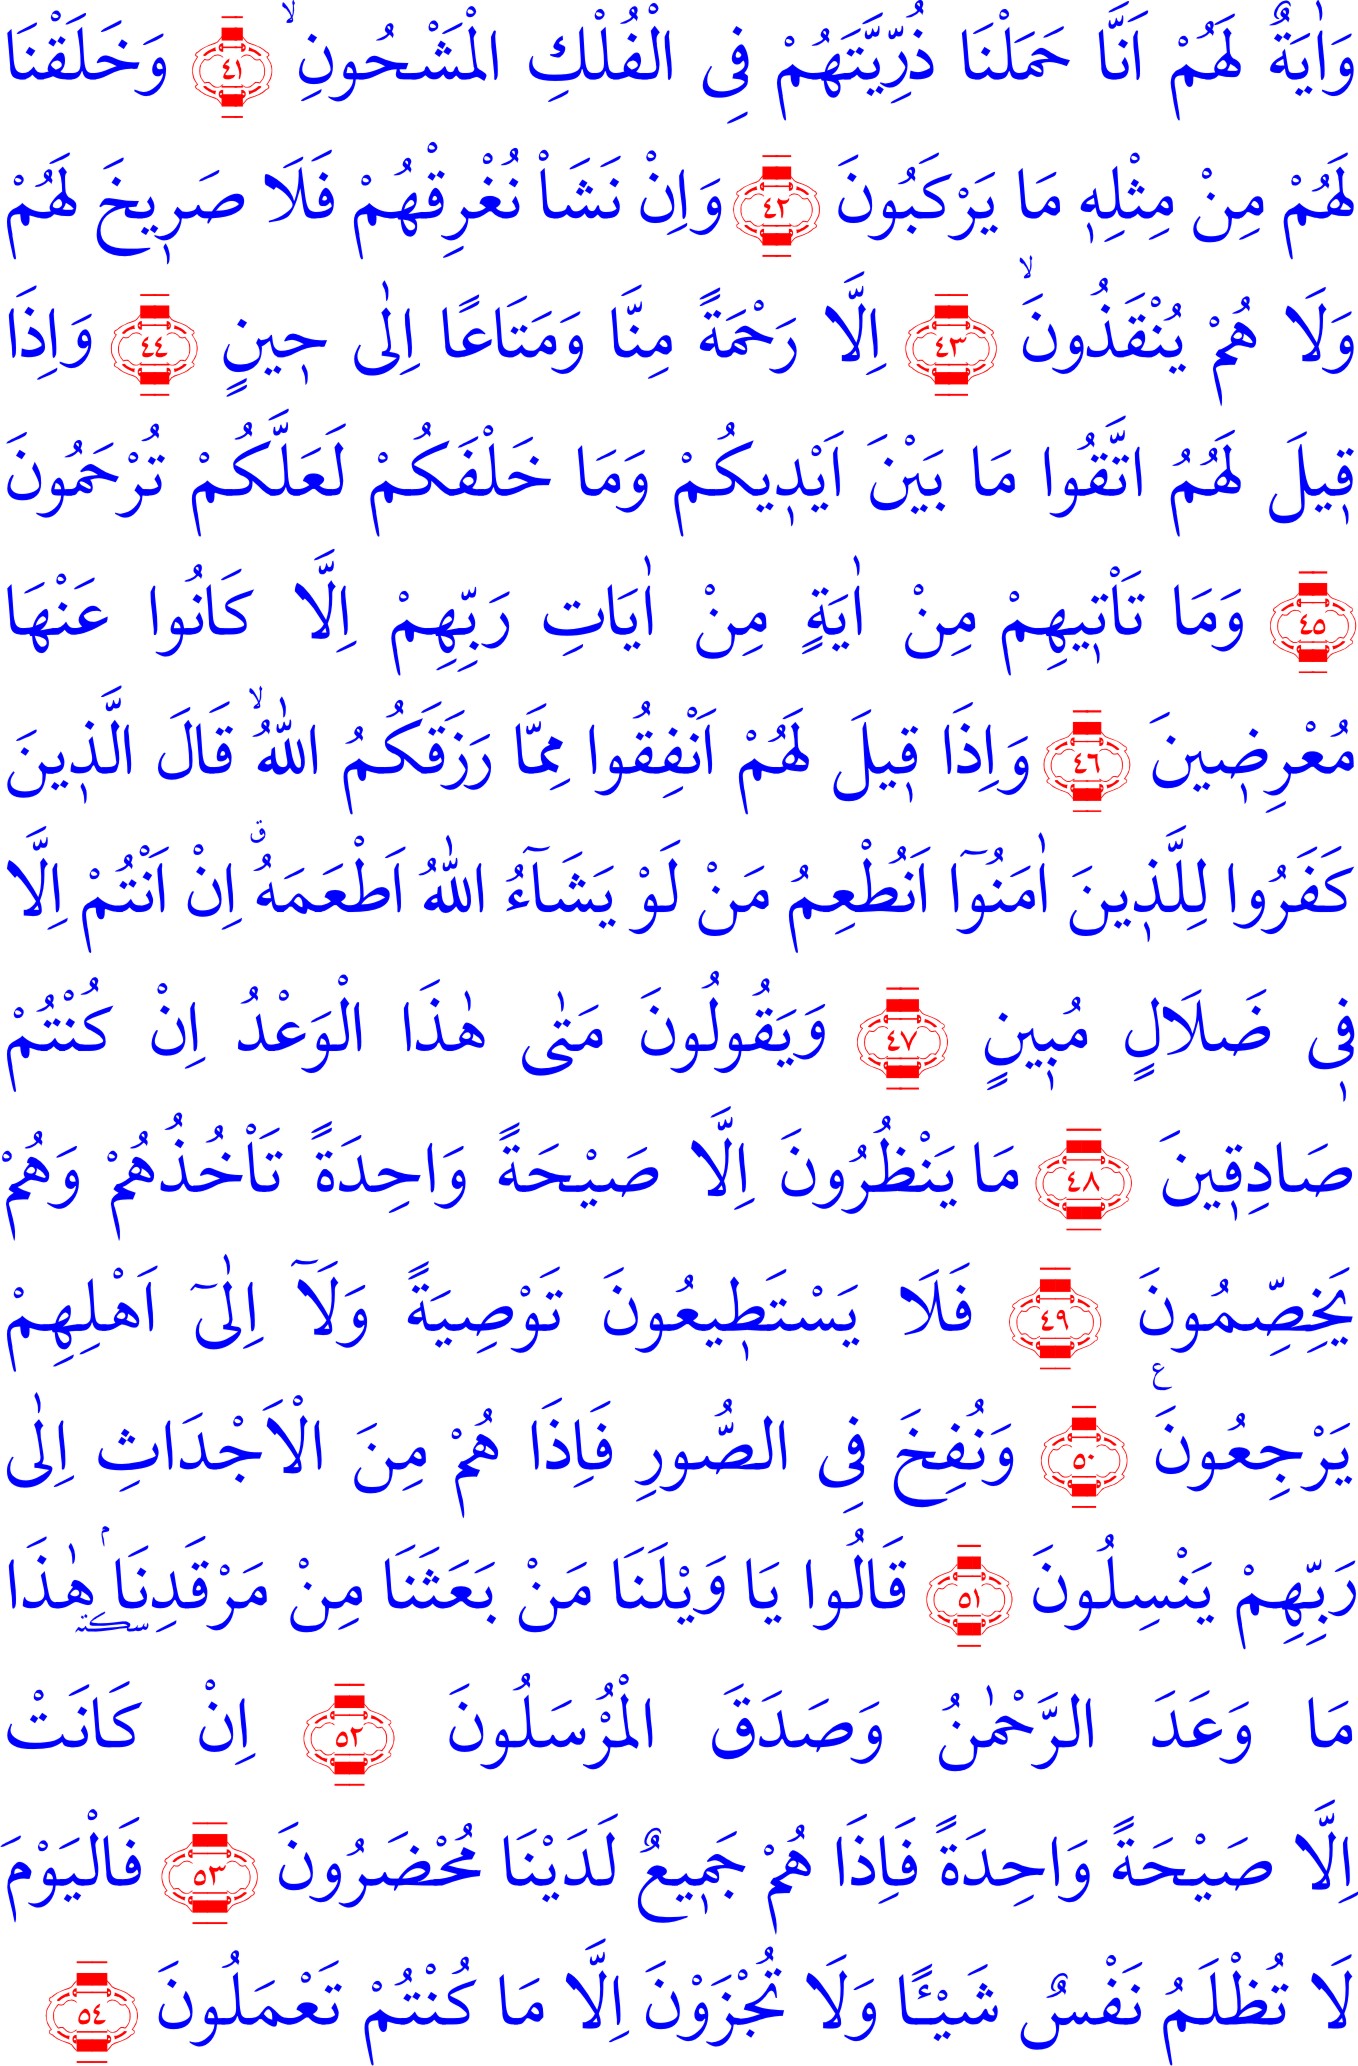 وَاٰيَةٌ لَهُمْ اَنَّا حَمَلْنَا ذُرِّيَّتَهُمْ فِى الْفُلْكِ الْمَشْحُونِۙ ﴿٤١﴾ وَخَلَقْنَا
لَهُمْ مِنْ مِثْلِهٖ مَا يَرْكَبُونَ ﴿٤٢﴾ وَاِنْ نَشَاْ نُغْرِقْهُمْ فَلَا صَرٖيخَ لَهُمْ
وَلَا هُمْ يُنْقَذُونَۙ ﴿٤٣﴾ اِلَّا رَحْمَةً مِنَّا وَمَتَاعًا اِلٰى حٖينٍ ﴿٤٤﴾ وَاِذَا
قٖيلَ لَهُمُ اتَّقُوا مَا بَيْنَ اَيْدٖيكُمْ وَمَا خَلْفَكُمْ لَعَلَّكُمْ تُرْحَمُونَ
﴿٤٥﴾ وَمَا تَاْتٖيهِمْ مِنْ اٰيَةٍ مِنْ اٰيَاتِ رَبِّهِمْ اِلَّا كَانُوا عَنْهَا
مُعْرِضٖينَ ﴿٤٦﴾ وَاِذَا قٖيلَ لَهُمْ اَنْفِقُوا مِمَّا رَزَقَكُمُ اللّٰهُۙ قَالَ الَّذٖينَ
كَفَرُوا لِلَّذٖينَ اٰمَنُوٓا اَنُطْعِمُ مَنْ لَوْ يَشَٓاءُ اللّٰهُ اَطْعَمَهُࣗ اِنْ اَنْتُمْ اِلَّا
فٖى ضَلَالٍ مُبٖينٍ ﴿٤٧﴾ وَيَقُولُونَ مَتٰى هٰذَا الْوَعْدُ اِنْ كُنْتُمْ
صَادِقٖينَ ﴿٤٨﴾ مَا يَنْظُرُونَ اِلَّا صَيْحَةً وَاحِدَةً تَاْخُذُهُمْ وَهُمْ
يَخِصِّمُونَ ﴿٤٩﴾ فَلَا يَسْتَطٖيعُونَ تَوْصِيَةً وَلَٓا اِلٰٓى اَهْلِهِمْ
يَرْجِعُونَࣖ ﴿٥٠﴾ وَنُفِخَ فِى الصُّورِ فَاِذَا هُمْ مِنَ الْاَجْدَاثِ اِلٰى
رَبِّهِمْ يَنْسِلُونَ ﴿٥١﴾ قَالُوا يَا وَيْلَنَا مَنْ بَعَثَنَا مِنْ مَرْقَدِنَاۢ سكتة هٰذَا
مَا وَعَدَ الرَّحْمٰنُ وَصَدَقَ الْمُرْسَلُونَ ﴿٥٢﴾ اِنْ كَانَتْ
اِلَّا صَيْحَةً وَاحِدَةً فَاِذَا هُمْ جَمٖيعٌ لَدَيْنَا مُحْضَرُونَ ﴿٥٣﴾ فَالْيَوْمَ
لَا تُظْلَمُ نَفْسٌ شَيْـًٔا وَلَا تُجْزَوْنَ اِلَّا مَا كُنْتُمْ تَعْمَلُونَ ﴿٥٤﴾